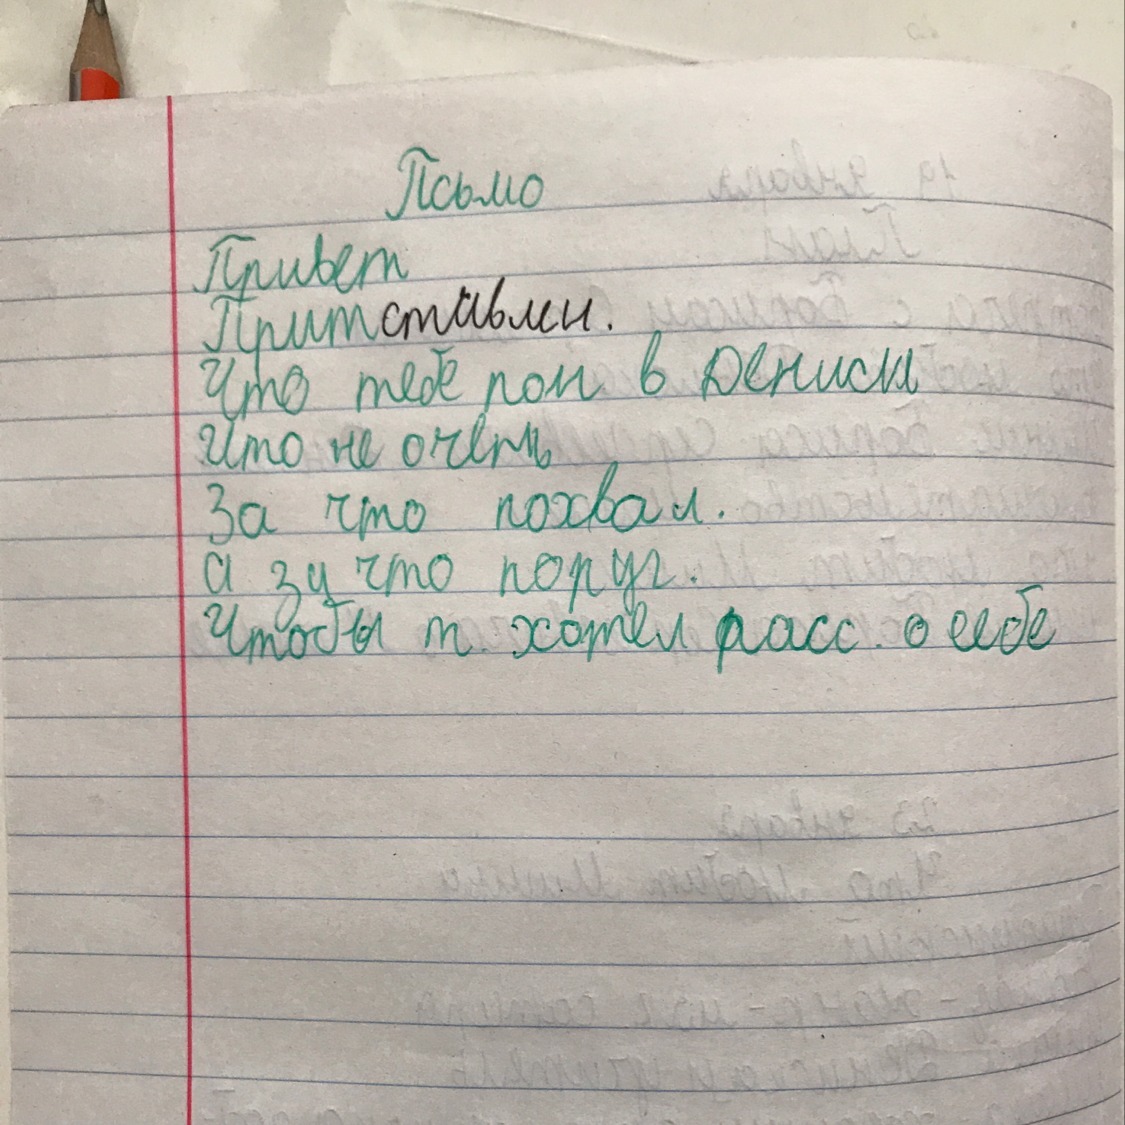 Псьмо
Привет
Притставлси.
Что тебе пон в Дениски
Что не очень
За что похвал.
а за что поруг.
Чтобы т. хотел расс. о себе